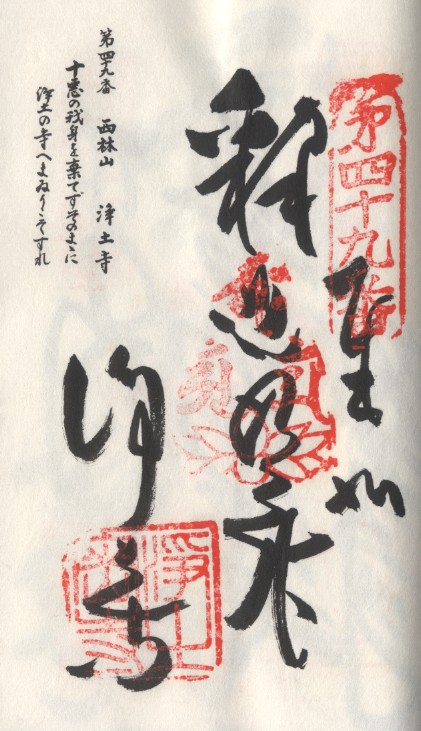 第四十九番
奉納
釋迦如来
浄土寺
第四十九番　西林山　浄土寺
十悪の我身を棄てずそのまゝに
浄土の寺へまゐりこそすれ